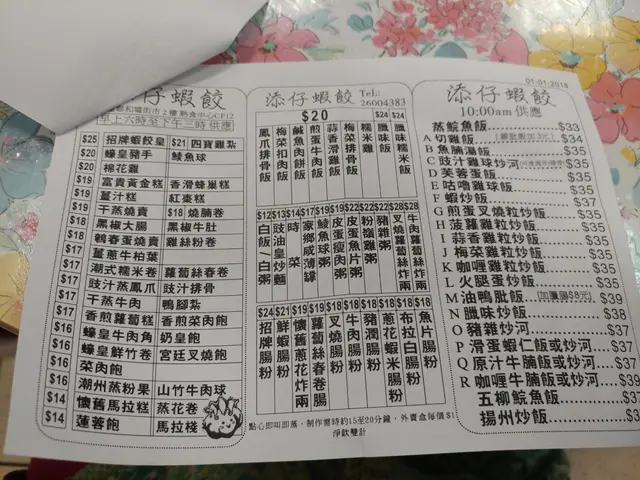 仔蝦餃
街市2樓熟食中心CF12
早上六時至下午三時 供應
$25 招牌蝦餃皇 $21 四寶雞紮
$20 蠔皇豬手 鯪魚球
$20 棉花雞
$19 富貴黃金糕 香滑蜂巢糕
$19 薑汁糕 紅棗糕
$19 干蒸燒賣 $18 燒腩卷
$18 黑椒大腸 黑椒牛肚
$18 鵪春蛋燒賣 雞絲粉卷
$17 薑蔥牛柏葉
$17 潮式糯米卷 蘿蔔絲春卷
$17 豉汁蒸鳳爪 豉汁排骨
$17 干蒸牛肉 鴨腳紮
$17 香煎蘿蔔糕 香煎菜肉飽
$16 蠔皇牛肉角 奶皇飽
$16 蠔皇鮮竹卷 宮廷叉燒飽
$16 菜肉飽
$16 潮州蒸粉果 山竹牛肉球
$14 懷舊馬拉糕 蒸花卷
$14 蓮蓉飽 馬拉棧
添仔蝦餃 TeL:
26004383
$20 $24 $24
鳳爪排骨飯
梅菜扣肉飯
鹹魚肉餅飯
煎蛋牛肉飯
蒜香排骨飯
梅菜排骨飯
糯米雞
臘味飯
臘味糯米飯
$12 白飯/白粥
$13 豉油皇炒麵
$14 時菜
$17 家鄉咸薄罉
$19 鯪魚球粥
$19 皮蛋瘦肉粥
$22 皮蛋魚片粥
$22 粉嶺雞粥
$22 豬雜粥
$28 叉燒蘿蔔絲炸兩
$28 牛肉蘿蔔絲炸兩
$24 招牌腸粉
$21 鮮蝦腸粉
$19 懷舊蔥花炸兩
$19 蘿蔔絲春卷腸
$18 叉燒腸粉
$18 牛肉腸粉
$18 豬潤腸粉
$18 蔥花蝦米腸粉
$18 布拉白腸粉
$18 魚片腸粉
點心即叫即蒸，制作需時約15至20分鐘，外賣盒每個$1
淨飲雙計
01-01-2018
添仔蝦餃
10:00am 供應
蒸鯇魚飯 $33
A 切雞飯 $34
B 魚腩湯飯 $35
C 豉汁雞球炒河 $35
D 芙蓉蛋飯 $35
E 咕嚕雞球飯 $35
F 蝦炒飯 $37
G 煎蛋叉燒粒炒飯 $35
H 菠蘿雞粒炒飯 $35
I 蒜香雞粒炒飯 $35
J 梅菜雞粒炒飯 $35
K 咖喱雞粒炒飯 $35
L 火腿蛋炒飯 $35
M 油鴨肶飯 (加臘腸$8元) $39
N 臘味炒飯 $38
O 豬雜炒河 $37
P 滑蛋蝦仁飯或炒河 $37
Q 原汁牛腩飯或炒河 $37
R 咖喱牛腩飯或炒河 $3
五柳鯇魚飯 $37
揚州炒飯 $3